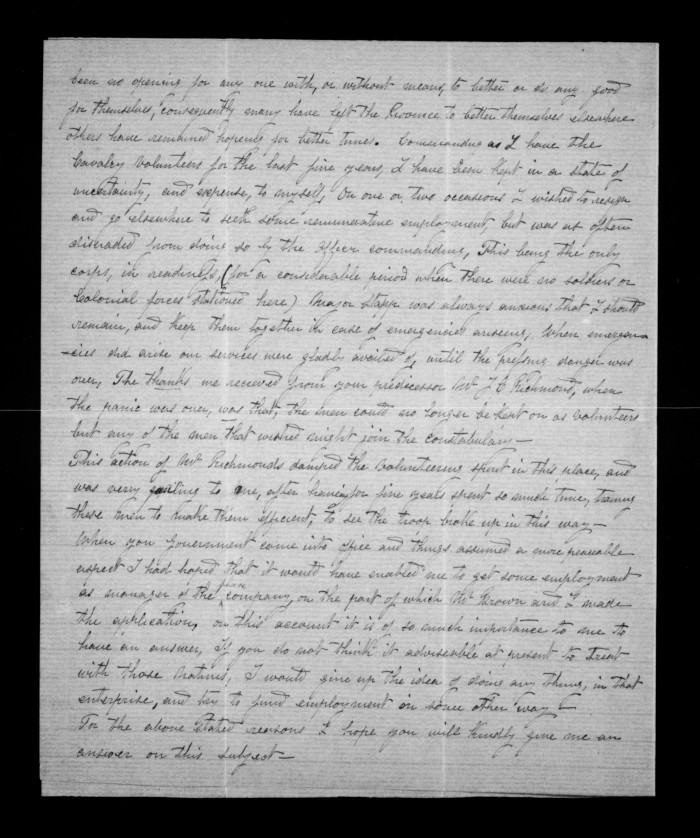 been no opening for any one with, or without means, to better or do any good
for themselves, consequently many have left the Province to better themselves elsewhere
others have remained hopeing for better times. Commanding as I have the
Cavalry Volunteers for the last five years, I have been kept in a state of
uncertainty, and expense, to myself, On one or two occasions I wished to resign
and go elsewhere to seek some remunerative employment, but was as often
disuaded from doing so by the officer commanding, This being the only
corps, in readiness, (for a considerable period when there were no soldiers or
Colonial forces stationed here) Major Stapp was always anxious that I should
remain, and keep them together in case of emergencies ariseing, When emergen-
-cies did arise our services were gladly availed of, until the pressing danger was
over, The thanks we received from your predecessor Mr J C Richmond, when
the panic was over, was that, the men could no longer be kept on as volunteers
but any of the men that wished might join the constabulary—
This action of Mr Richmonds damped the volunteering spirit in this place, and
was very galling to me, after haveing for five years spent so much time, traing
these men to make them efficient, to see the troop broke up in this way—
When you government came into office and things assumed a more peaceable
aspect I had hoped that it would have enabled me to get some employment
as manager of the company, on the part of which Mr Brown and I made
the application, on this account it is of so much importance to me to
have an answer, If you do not think it adviseable at present to treat
with those natives, I would give up the idea of doing any thing, in that
enterprise, and try to find employment in some other way—
For the above stated reasons I hope you will kindly give me an
answer on this subject—